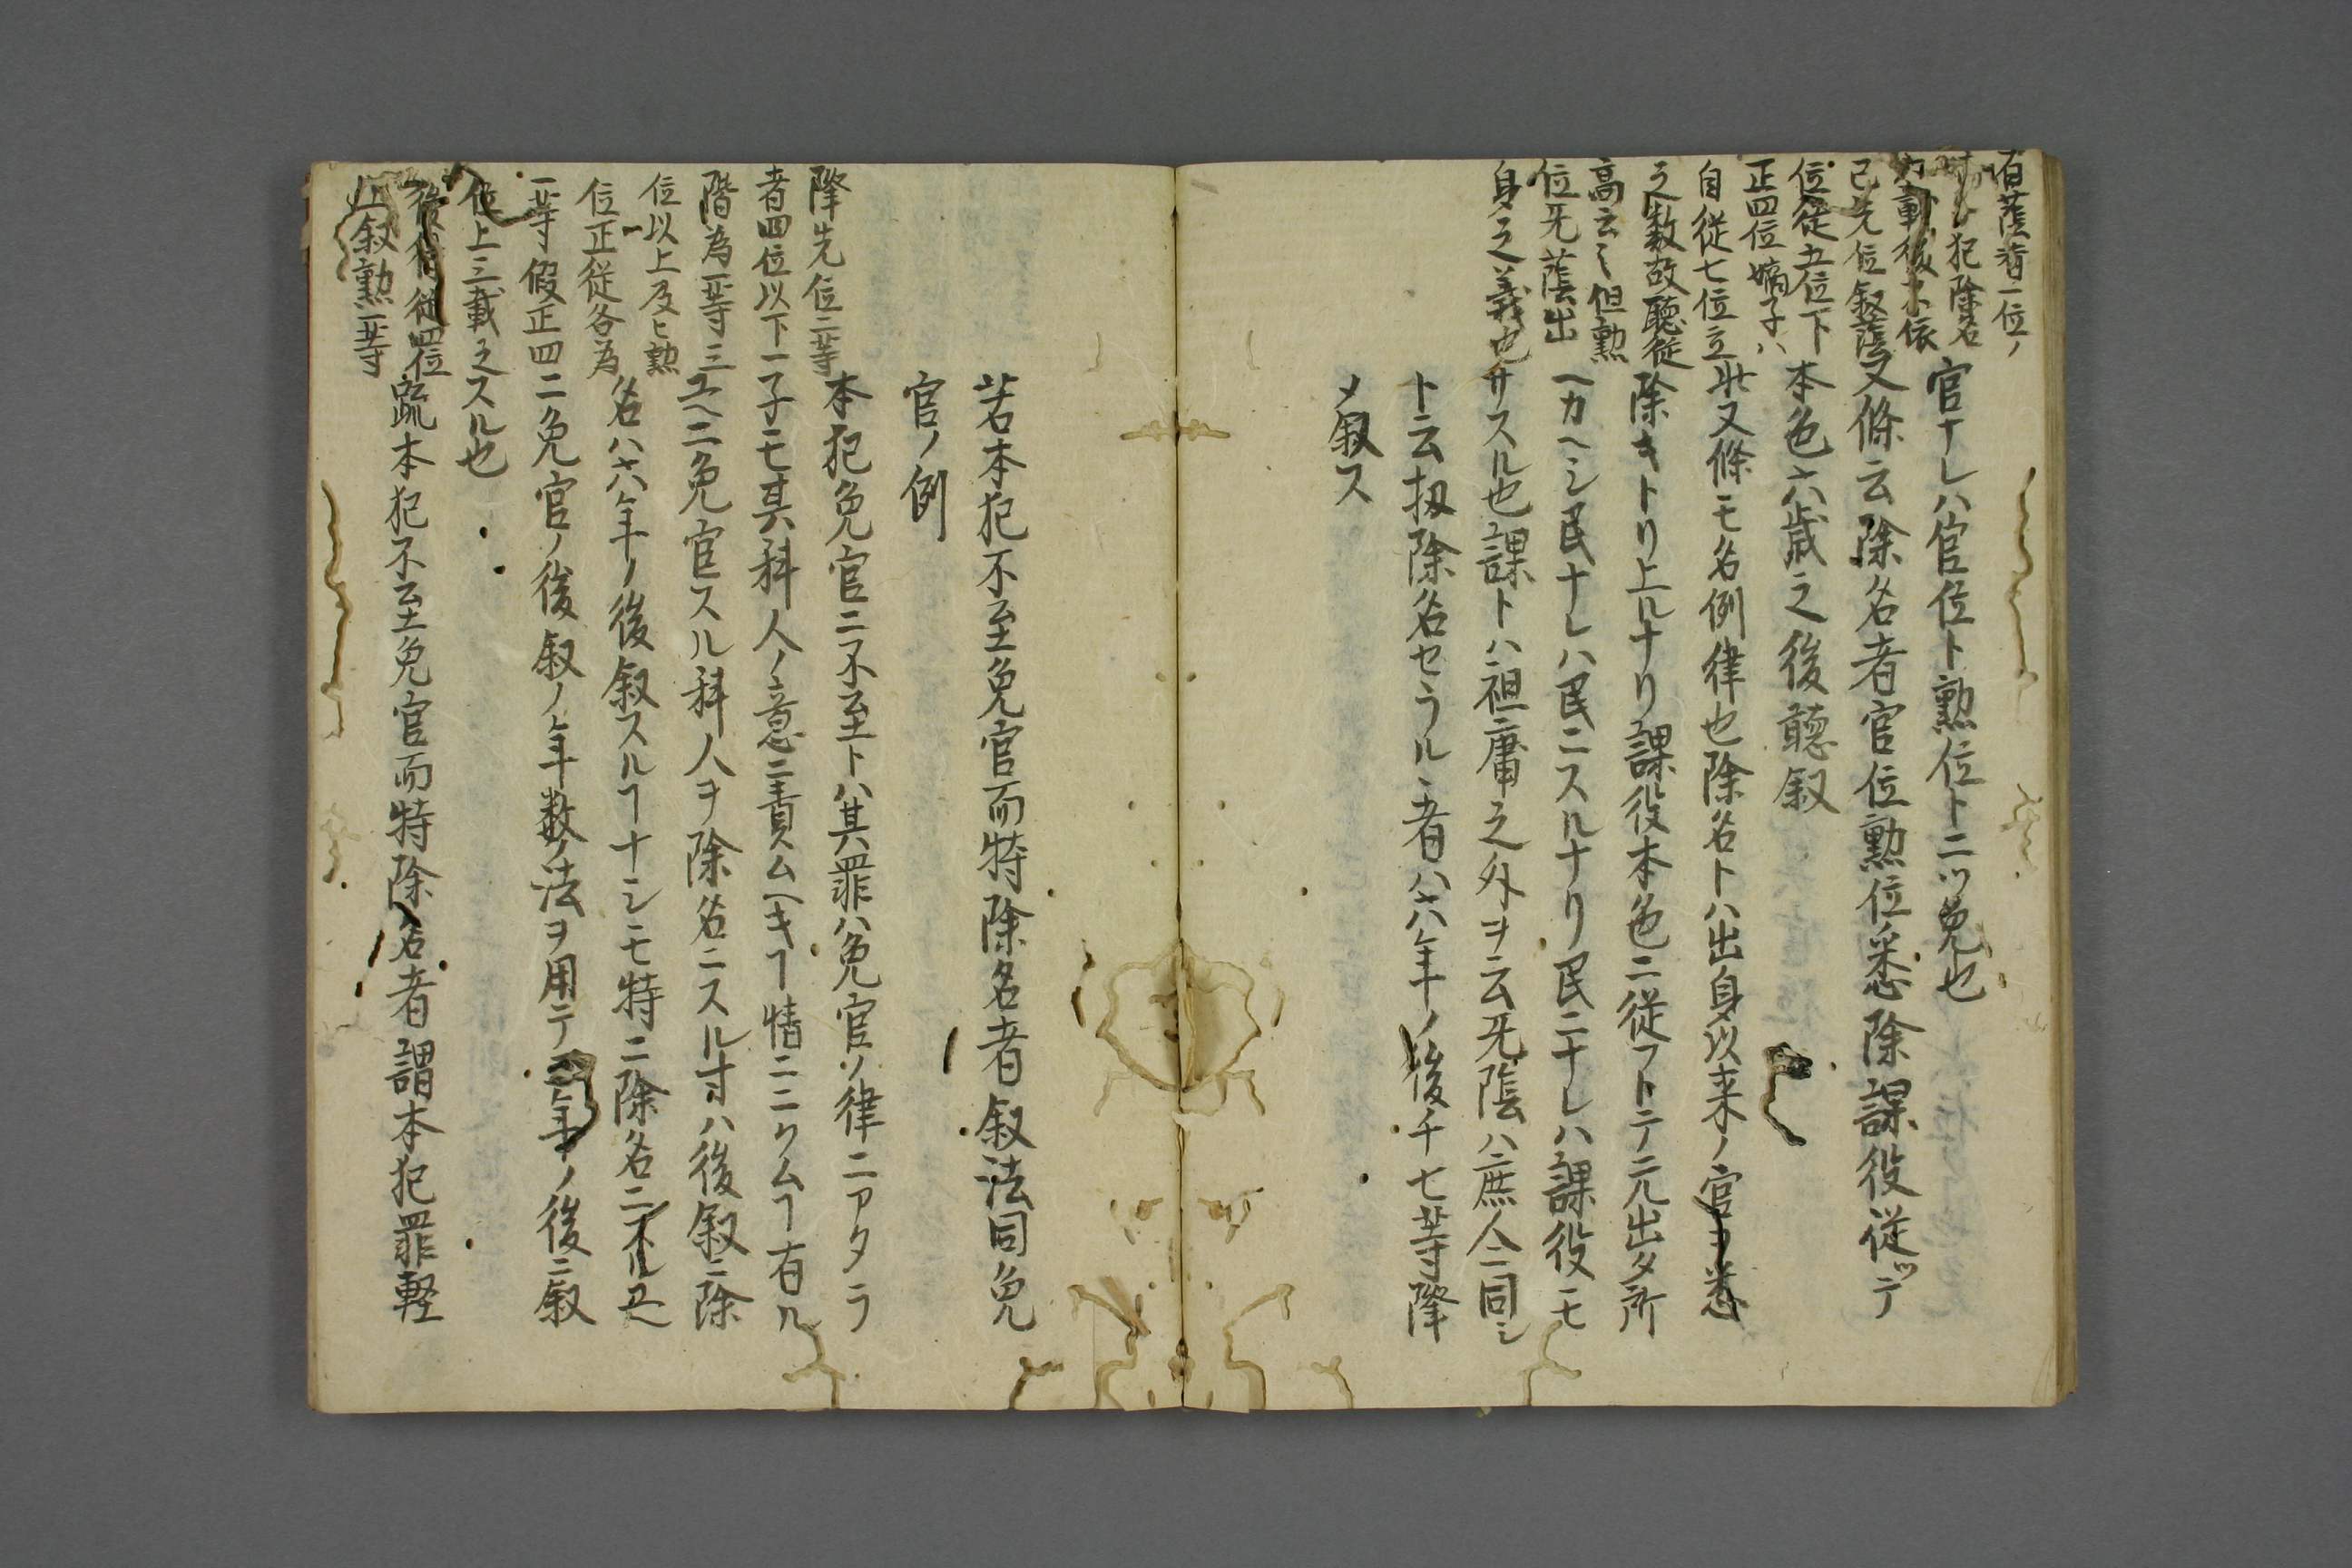 有蔭者一位ノ
犯除名
六載後不依
己先位叙蔭
位従五位下
正四位嫡子ハ
自従七位立
之数故聴従
高云々但勲
位旡蔭出
身之義也
官ナレハ官位ト勲位ト二ツ免也
又條云除名者官位勲位悉除課役従ッテ
本色六歳之後聽叙
此又條モ名例律也除名トハ出身以来ノ官ヲ悉
除キトリ上ルナリ課役本色ニ従フトテ元出タ所
ヘカヘシ民ナレハ民ニスルナリ民ニナレハ課役モ
サスル也課トハ祖庸之外ヲ云旡蔭ハ庶人ニ同シ
ト云扨除名セラルヽ者ハ六年ノ後チ七等降
メ叙ス
降先位二等
者四位以下一
階為一等三
位以上及ヒ勲
位正従各為
一等假正四
位上三載之
後従四位
上叙勲一等
若本犯不至免官而特除名者叙法同免
官ノ例
本犯免官ニ不至トハ其罪ハ免官ソ律ニアタラ
子モ其科人ノ意ニ責ムヘキヿ情ニニクムヿ有ル
ユヘニ免官スル科人ヲ除名ニスル寸ハ後叙ニ除
名ハ六年ノ後叙スルヿナシモ特ニ除名ニ
ニ免官ノ後叙ノ年数ノ法ヲ用テ三年ノ後ニ叙
スル也
疏本犯不至免官而特除名者謂本犯罪軽